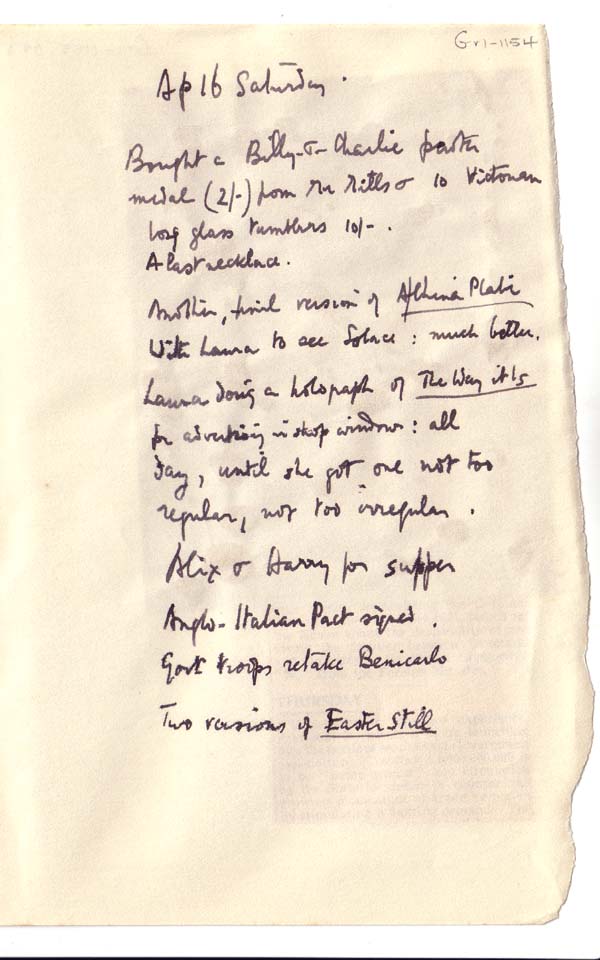 Gr1-1154
Ap 16 Saturday.
Bought a Billy-&-Charlie pewter
medal (2/-) from Mr Mills & 10 Victorian
long glass tumblers 10/-.
A last necklace.
Another, final version of Athena Plate
With Laura to see Solace: much better.
Laura doing a holograph of The Way it Is
for advertising in shop windows: all
day, until she got one not too
regular, not too irregular.
Alix & Harry for supper
Anglo-Italian Pact signed.
Govt troops retake Benicarlo
Two versions of Easter Still